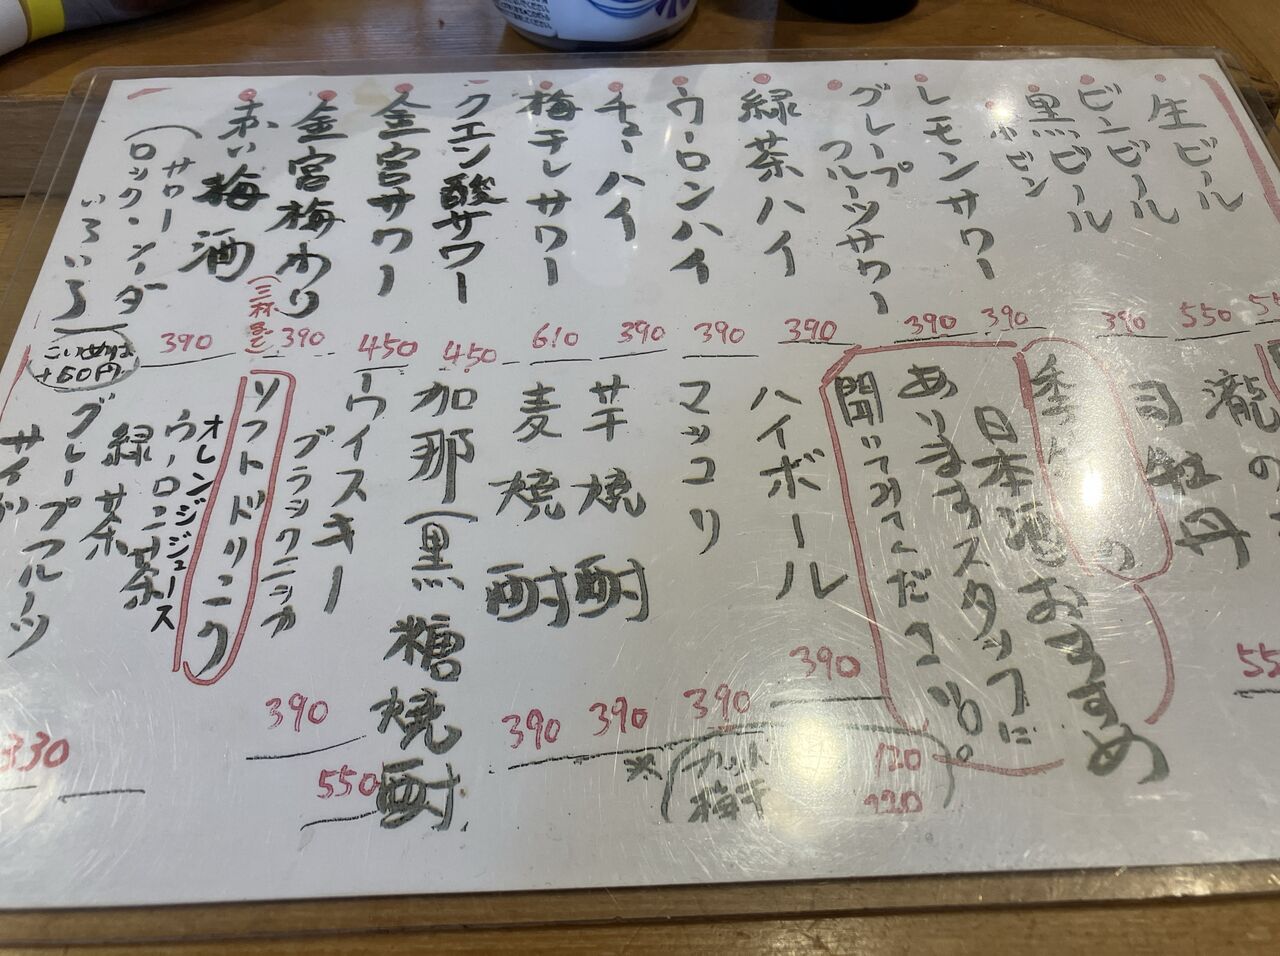 生ビール
ビンビール 550
黒ビール
小ビン 390
レモンサワー 390
グレープ
フルーツサワー 390
緑茶ハイ 390
ウーロンハイ 390
チューハイ 390
梅干しサワー 610
クエン酸サワー 450
金宮サワー 450
金宮梅わり 390
(三杯まで)
赤い梅酒 390
(サワー
ロック・ソーダ
いろいろ)
こいめは
+60円
司牡丹
日本酒おすすめ
ありますスタッフに
聞いてみてください。
ハイボール 390
マッコリ 390
芋焼酎 390
麦焼酎 390
※(カット 120
梅干 120)
加那(黒糖焼酎 550
ウイスキー
ブラックニッカ 390
ソフトドリンク
オレンジジュース
ウーロン茶
緑茶
グレープフルーツ
330